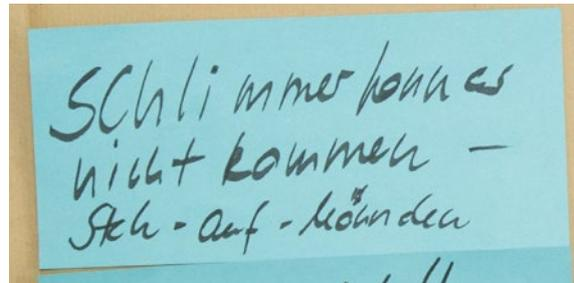 Schlimmer kann es
nicht kommen -
Steh-auf-Männchen